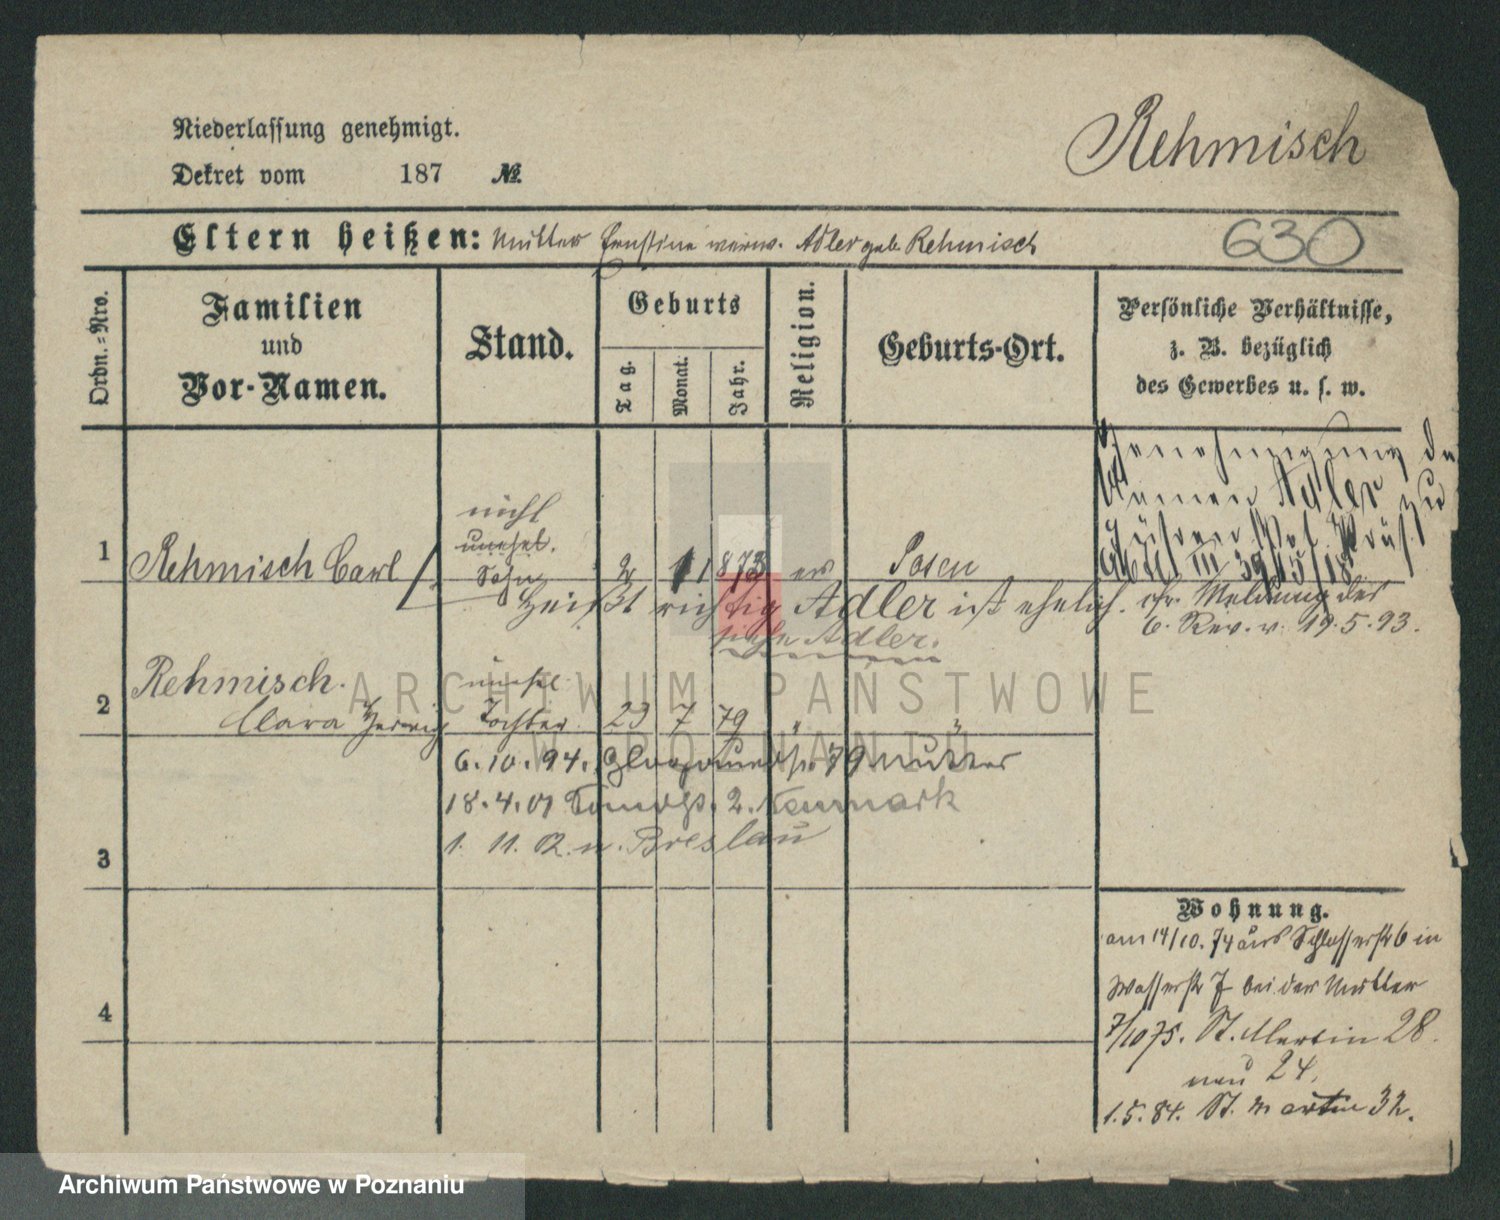 Rehmisch
Niederlassung genehmigt.
Dekret vom 187 №
Eltern heißen: Mutter Ernstine verw. Adler geb. Rehmisch
630
Ordn.-Nro.
Familien
und
Vor-Namen.
Stand.
Geburts
Tag.
Monat.
Jahr.
Religion.
Geburts-Ort.
Persönliche Verhältnisse,
z. B. bezüglich
des Gewerbes u. s. w.
Genehmigung den
Namen Adler zu
führen
nicht
unehel.
1 Rehmisch Carl Sohn 2 11 873 ev Posen
Heißt richtig Adler ist ehelich. cfr. Meldung des
6. Rev. v. 19.5.93.
siehe Adler.
Rehmisch. unehel
2 Clara Hedwig Tochter. 23 7 79 "
6.10.94. 79 Mutter
18.4.01 2. Neumark
3 1. 11. 02. n. Breslau
4
Wohnung.
am 14/10. 74 aus Schlosserstr 6 in
Wasserstr 7 bei der Mutter
7/10 75. St. Martin 28.
neu 24.
1.5.84. St. Martin 32.
ARCHIWUM PAŃSTWOWE
W POZNANIU
Archiwum Państwowe w Poznaniu